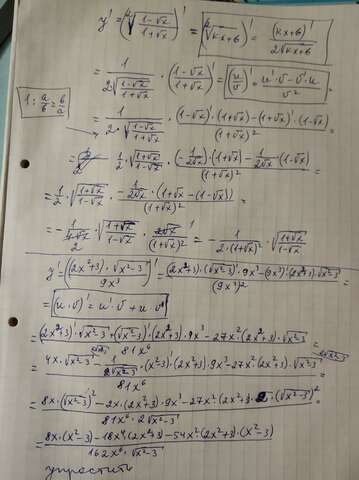 y' = (√((1-√x)/(1+√x)))' = (√(kx+b))' = (kx+b)'/(2√(kx+b))
= 1/(2√((1-√x)/(1+√x))) · ((1-√x)/(1+√x))' = (u/v)' = (u'·v - v'·u)/v²
1 : a/b = b/a
= 1/(2·√((1-√x)/(1+√x))) · ((1-√x)'·(1+√x) - (1+√x)'·(1-√x))/(1+√x)² =
= 1/2 · √((1+√x)/(1-√x)) · ((-1/(2√x))·(1+√x) - 1/(2√x)(1-√x))/(1+√x)² =
= 1/2 · √((1+√x)/(1-√x)) · (-1/(2√x) · (1+√x - (1-√x)))/(1+√x)² =
= - · √((1+√x)/(1-√x)) · = - 1/(2·(1+√x)²) · √((1+√x)/(1-√x))
y' = (((2x²+3)·√(x²-3))/(9x³))' = ((2x²+3)·(√(x²-3))'·9x³ - (9x³)'·(2x²+3)·√(x²-3))/(9x³)² =
= (u·v)' = u'v + u·v'
= ((2x²+3)'·√(x²-3) + (√(x²-3))'·(2x²+3)·9x³ - 27x²(2x²+3)·√(x²-3))/(81x⁶) =
= (4x·√(x²-3) · (x²-3)'·(2x²+3)·9x³ - 27x²(2x²+3)·√(x²-3))/(81x⁶) =
= (8x·(√(x²-3))² - 2x·(2x²+3)·9x³ - 27x²(2x²+3)·2·(√(x²-3))²)/(81x⁶·2√(x²-3)) =
= (8x·(x²-3) - 18x⁴(2x²+3) - 54x²·(2x²+3)·(x²-3))/(162x⁶·√(x²-3))
упростить